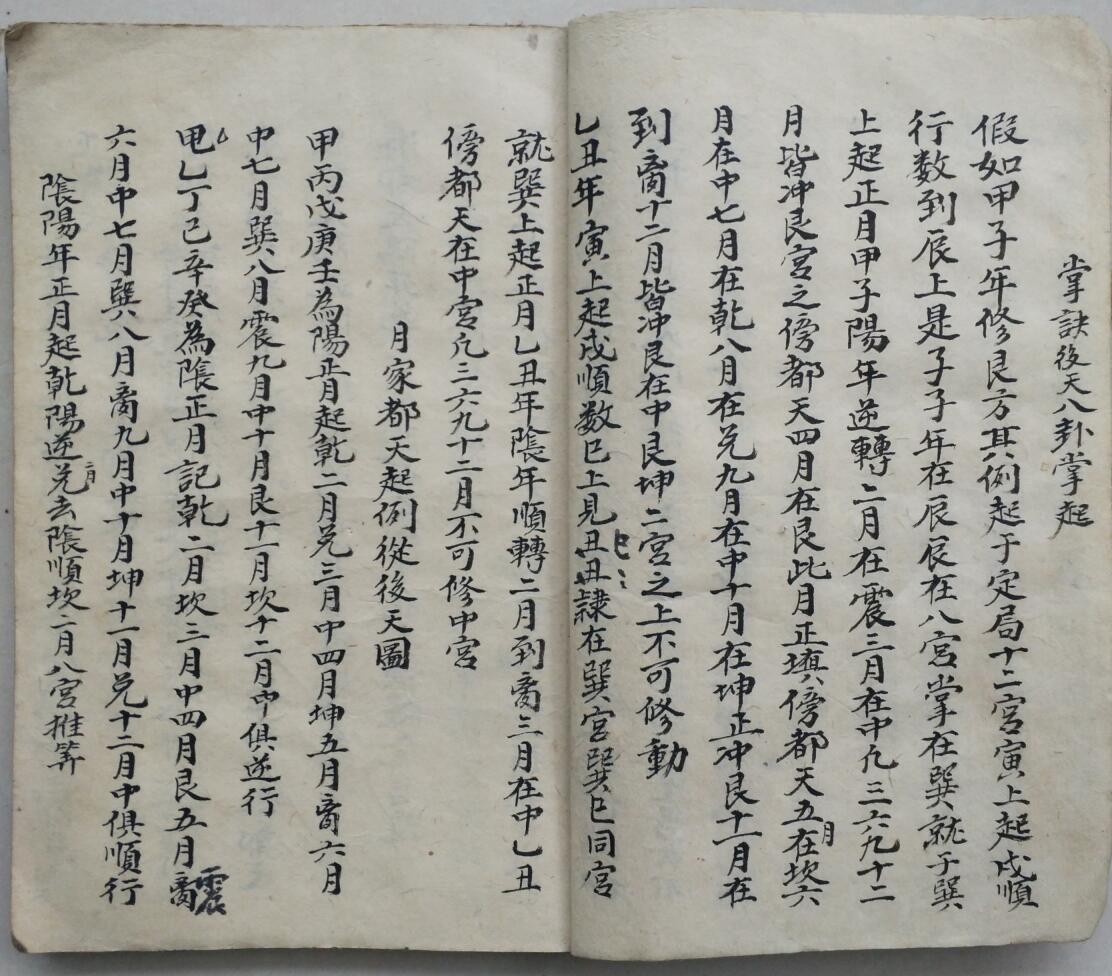 掌訣後天八卦掌起
假如甲子年修艮方其例起于定局十二宮寅上起戌順
行数到辰上是子子年在辰辰在八宮掌在巽就于巽
上起正月甲子陽年逆轉二月在震三月在中凢三六九十二
月皆冲艮宮之傍都天四月在艮此月正填傍都天五月在坎六
月在中七月在乾八月在兑九月在中十月在坤正冲艮十一月在
到离十二月皆冲艮在中艮坤二宮之上不可修動
乙丑年寅上起戌順数巳上見丑丑隷在巽宮巽巳同宮
就巽上起正月乙丑年隂年順轉二月到离三月在中乙丑
傍都天在中宮凢三六九十二月不可修中宮
月家都天起例從後天圖
甲丙戊庚壬為陽正月起乾二月兑三月中四月坤五月离六月
中七月巽八月震九月中十月艮十一月坎十二月中俱逆行
乙丁己辛癸為隂正月記乾二月坎三月中四月艮五月震
六月中七月巽八月离九月中十月坤十一月兑十二月中俱順行
隂陽年正月起乾陽逆二月兑去隂順坎二月八宮推筭